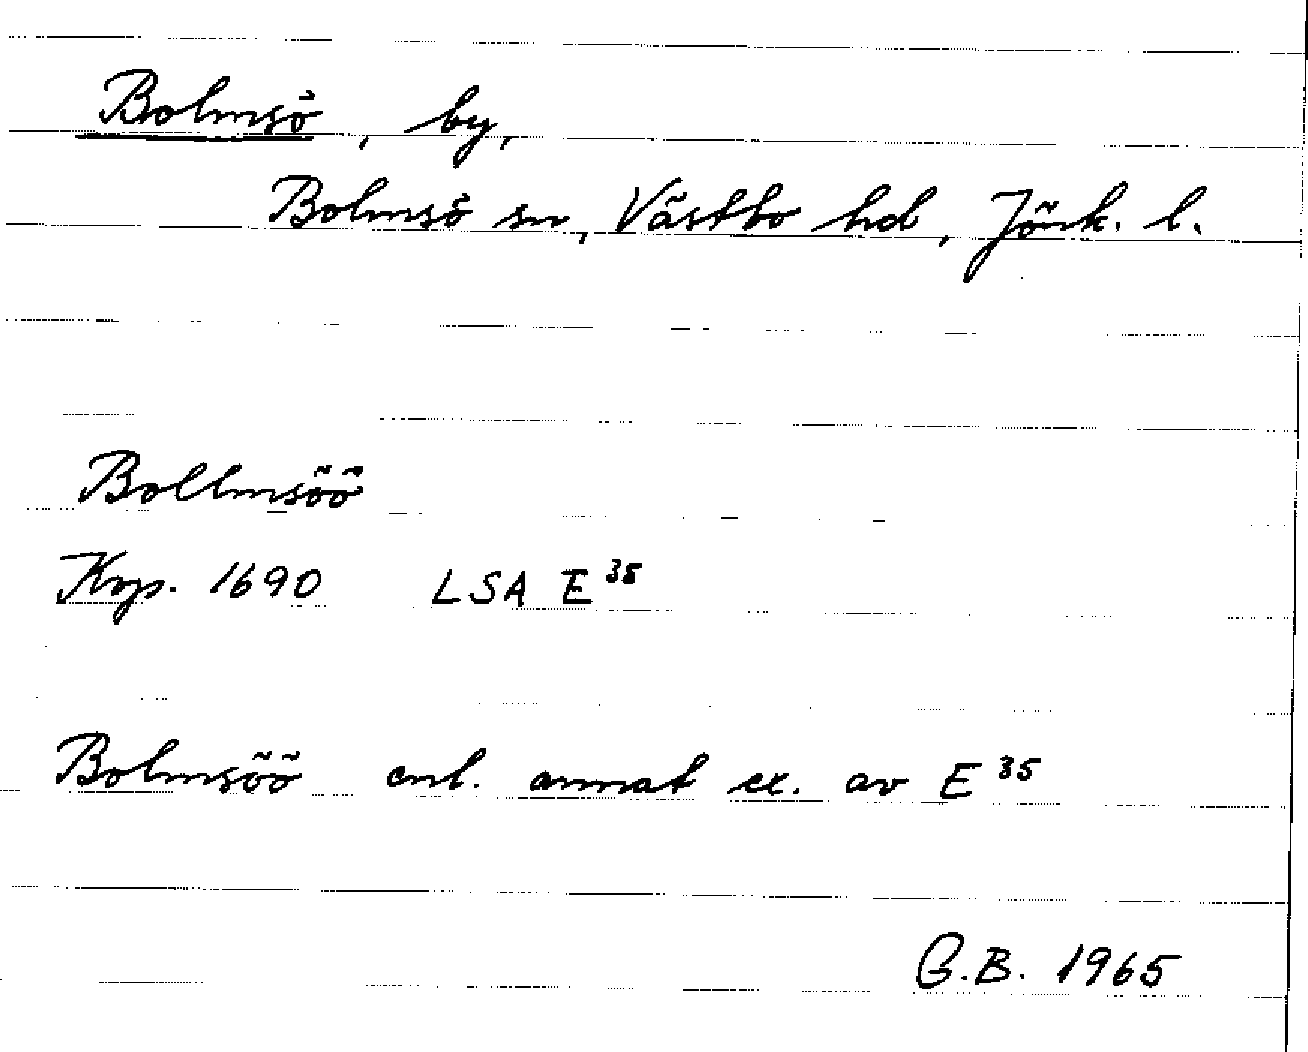 Bolmsö, by,
Bolmsö sn, Västbo hd, Jönk. l.
Bollmsöö
Kop. 1690 LSA E 35
Bolmsöö enl. annat ex. av E 35
G.B. 1965